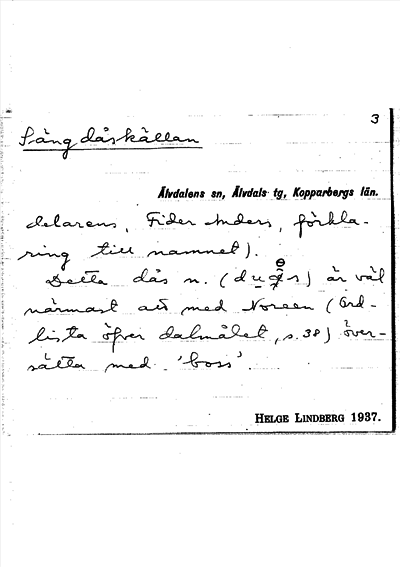 3
Sängdåskällan
Älvdalens sn, Älvdals tg, Kopparbergs län.
delarens, Fider Anders, förkla-
ring till namnet).
Detta dås n. (
s) är väl
närmast att med Noreen (Ord-
lista öfver dalmålet, s. 38) över-
sätta med 'boss'.
HELGE LINDBERG 1937.